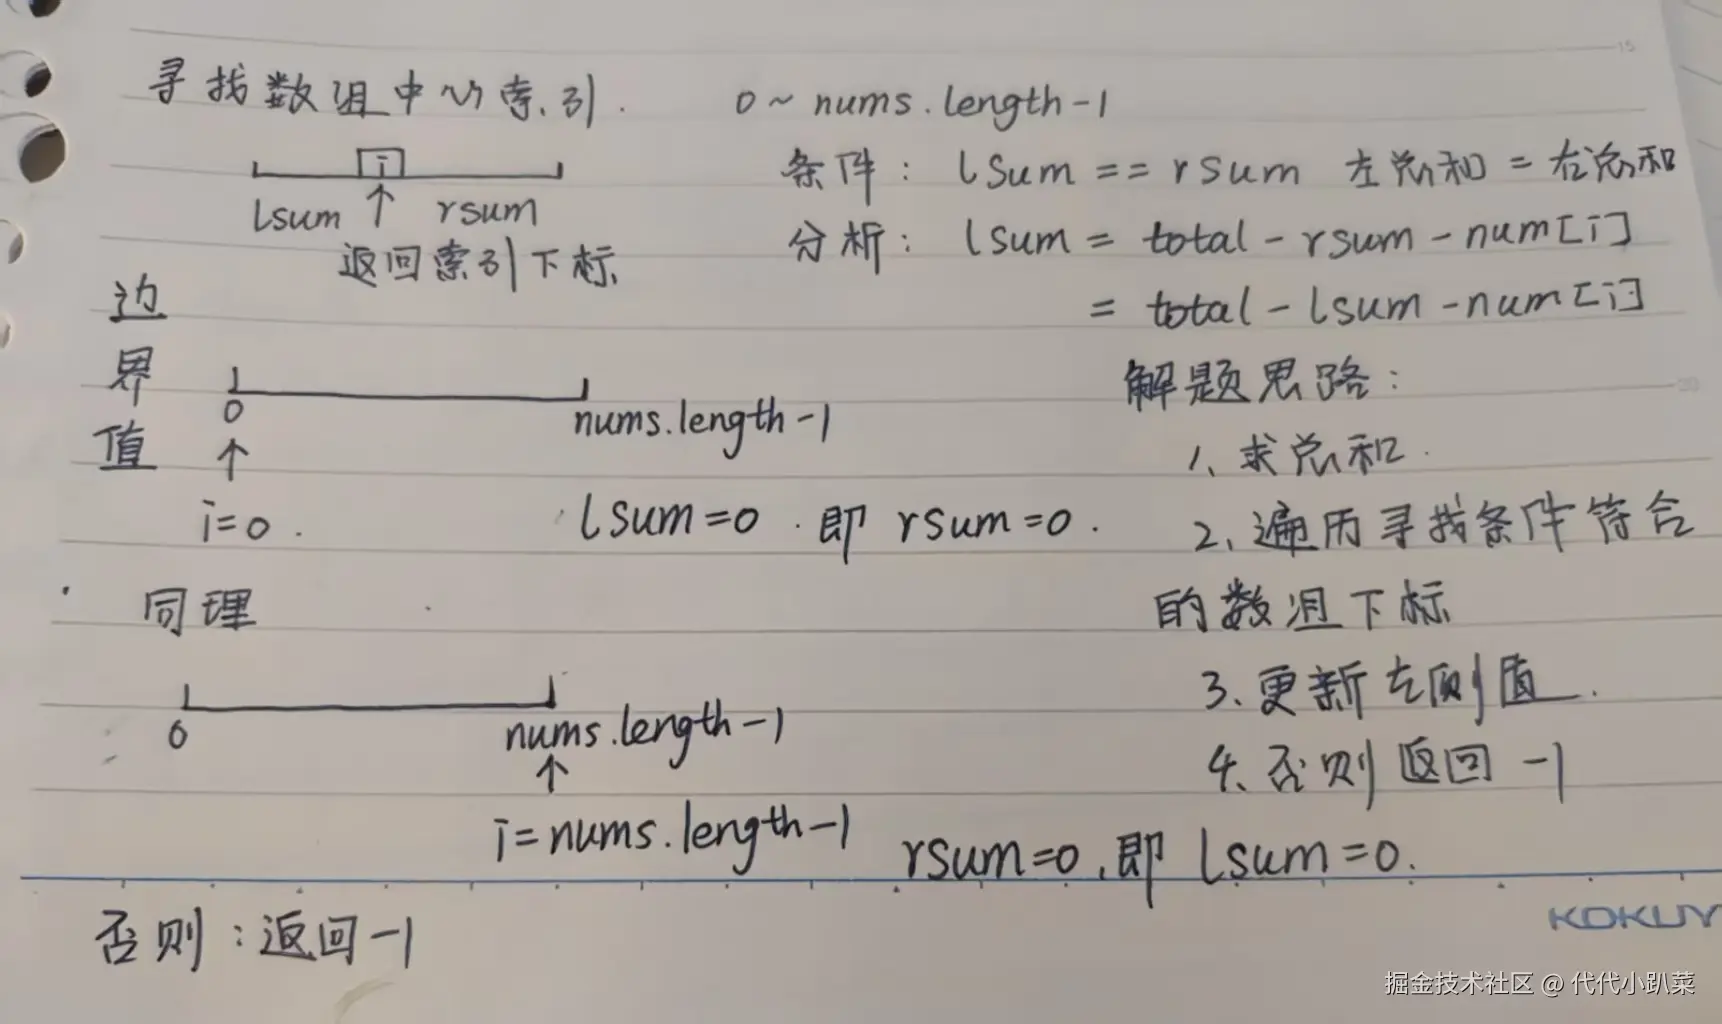 寻找数组中心索引.
0~nums.length-1
i
lsum ↑ rsum
返回索引下标
条件: lsum == rsum 左总和 = 右总和
分析: lsum = total - rsum - num[i]
= total - lsum - num[i]
边界值
0 nums.length-1
↑
i=0. lsum=0. 即 rsum=0.
同理
0 nums.length-1
↑
i=nums.length-1 rsum=0,即 lsum=0.
否则:返回-1
解题思路:
1、求总和.
2、遍历寻找条件符合
的数组下标
3、更新左侧值.
4、否则返回-1
15
20
KOKUY
掘金技术社区 @ 代代小趴菜